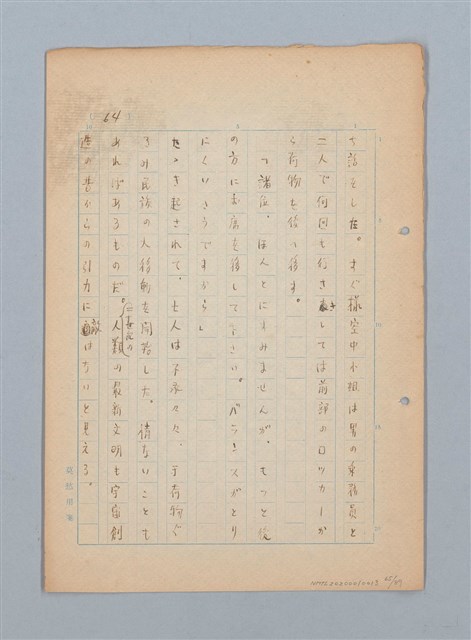 64
を話をした。すぐ様空中小姐は男の事務員と
二人で何回も行きさしては前部のロッカーか
ら荷物を後へ移す。
「諸臣、ほんとにすみませんが、もっと後
の方に お席を移して下さい。バランスがとり
にくいさうですから」
せき起されて、七人は不承々々、手荷物ぐ
るみ民族の大移動を開始した。情ないことも
あればあるものだ。二十世紀の人類の最新文明も宇宙創
造の昔からの引力に敵はないと見える。
原稿用箋
NMTL20200010413
65/89